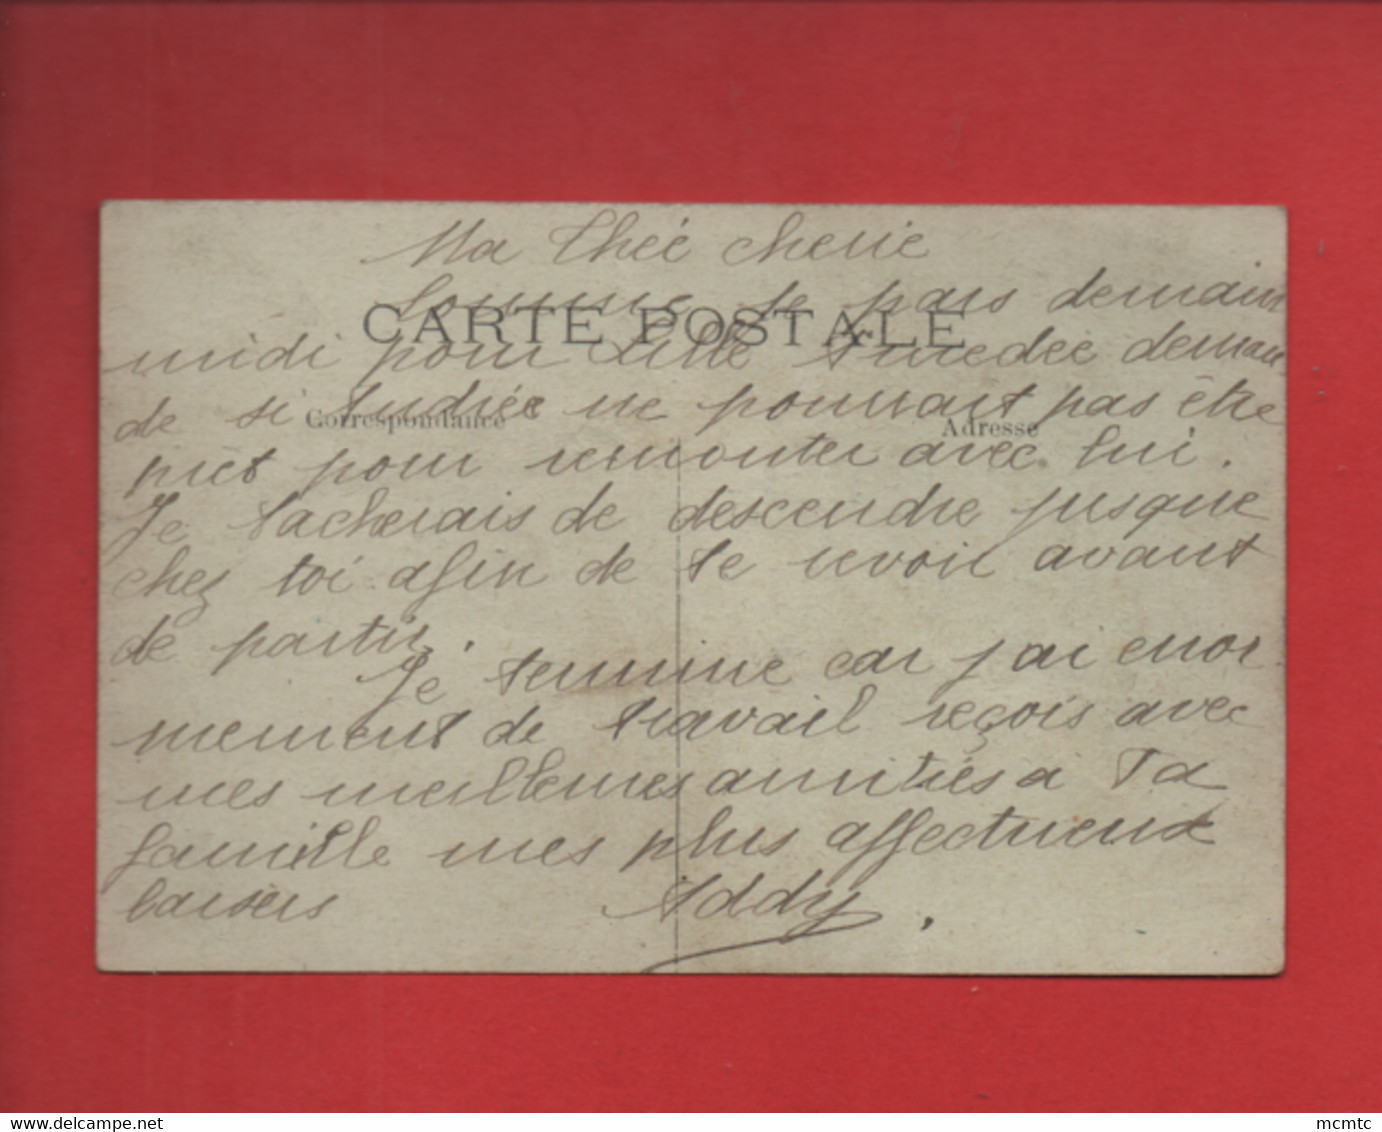 Ma Thée cherie
je pars demain
CARTE POSTALE
midi pour Lille Amedée deman
Correspondance
Adresse
de si Andrée ne pourrait pas être
prèt pour remonter avec lui.
Je tacherais de descendre jusque
chez toi afin de te revoir avant
de partir.
Je termine car j'ai enor
mement de travail reçois avec
mes meilleures amitiés a Ta
famille mes plus affectueux
baisers Addy.
delcampe.net
mcmtc